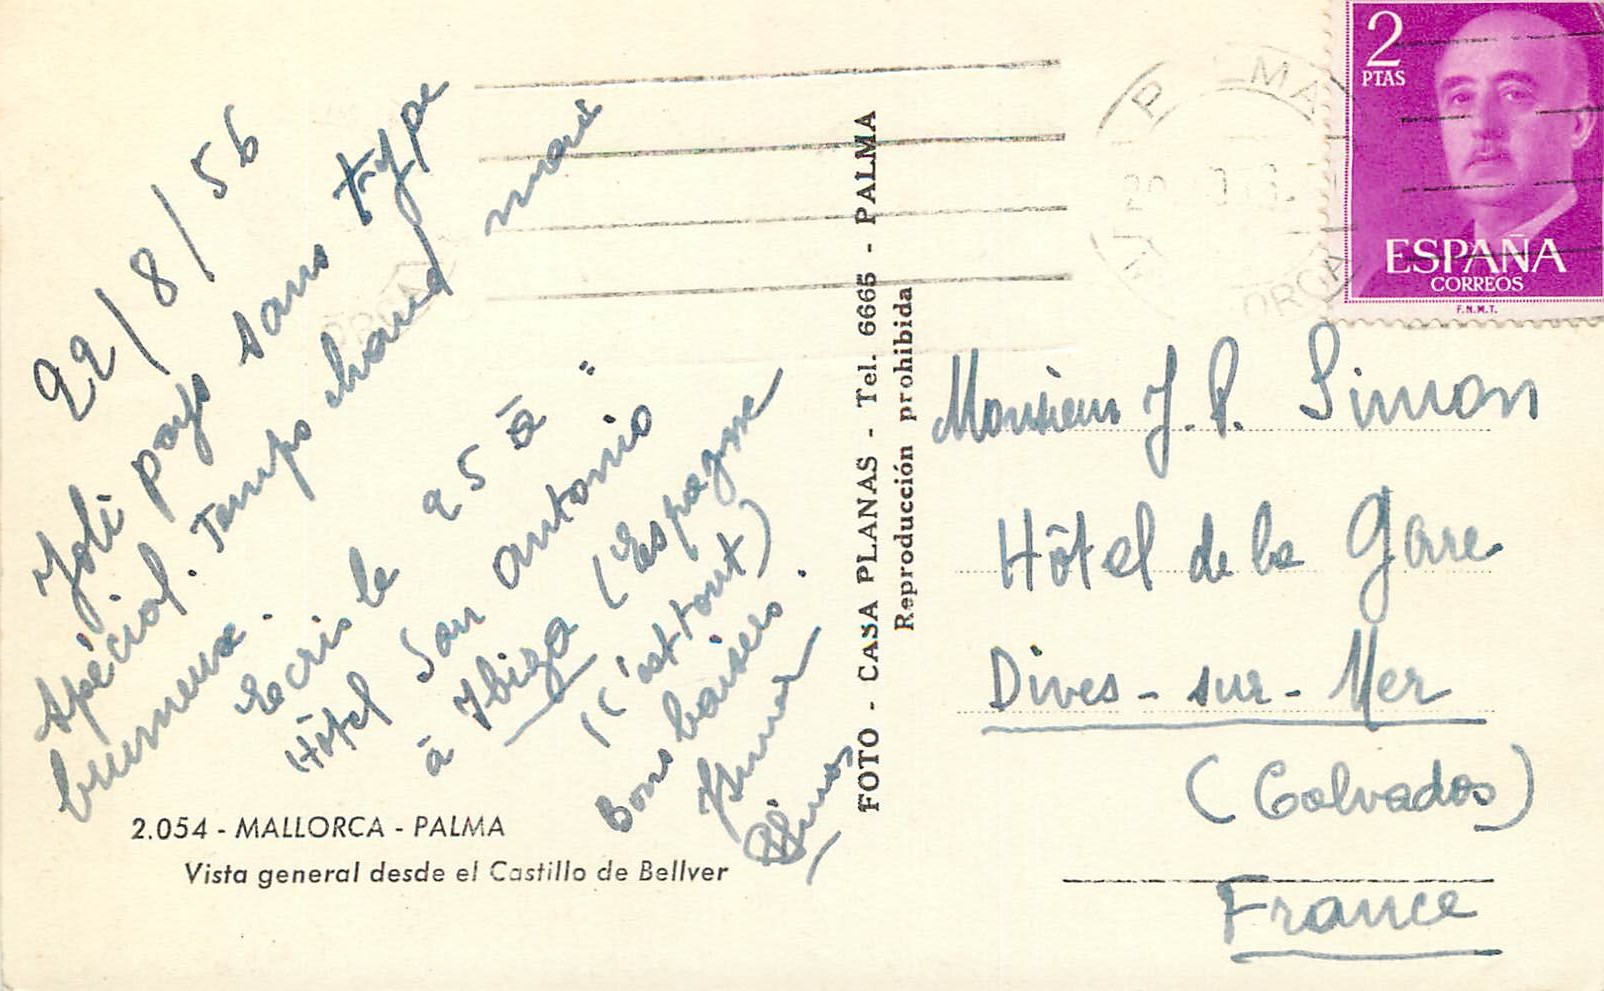 22/8/56
Joli pays sans type
spécial. Temps chaud mais
brumeux.
Ecris le 25 à "
Hôtel San Antonio
à Ibiza (Espagne
(c'est tout)
Bons baisers.
2.054 - MALLORCA - PALMA
Vista general desde el Castillo de Bellver
FOTO - CASA PLANAS - Tel. 6665 - PALMA
Reproducción prohibida
2
PTAS
ESPAÑA
CORREOS
F.N.M.T.
Monsieur J. P. Simon
Hôtel de la Gare
Dives-sur-Mer
(Calvados)
France